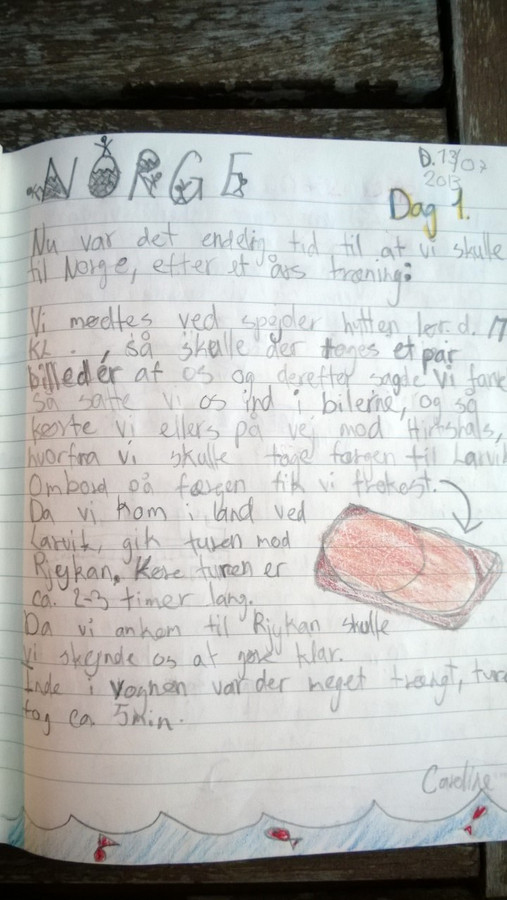 NORGE
D. 13/07
2013
Dag 1.
Nu var det endelig tid til at vi skulle
til Norge, efter et års træning:
Vi mødtes ved spejder hytten lør. d. 17
Kl. . , så skulle der tages et par
billeder af os og derefter sagde vi farv
så satte vi os ind i bilerne, og så
kørte vi ellers på vej mod Hirtshals,
hvorfra vi skulle tage færgen til Larvik
Ombord på færgen fik vi frokost.
Da vi kom i land ved
Larvik, gik turen mod
Rjeykan. Køre turen er
ca. 2-3 timer lang.
Da vi ankom til Rjykan skulle
vi skynde os at gøre klar.
Inde i vognen var der meget trængt, ture
tog ca. 5min.
Caroline